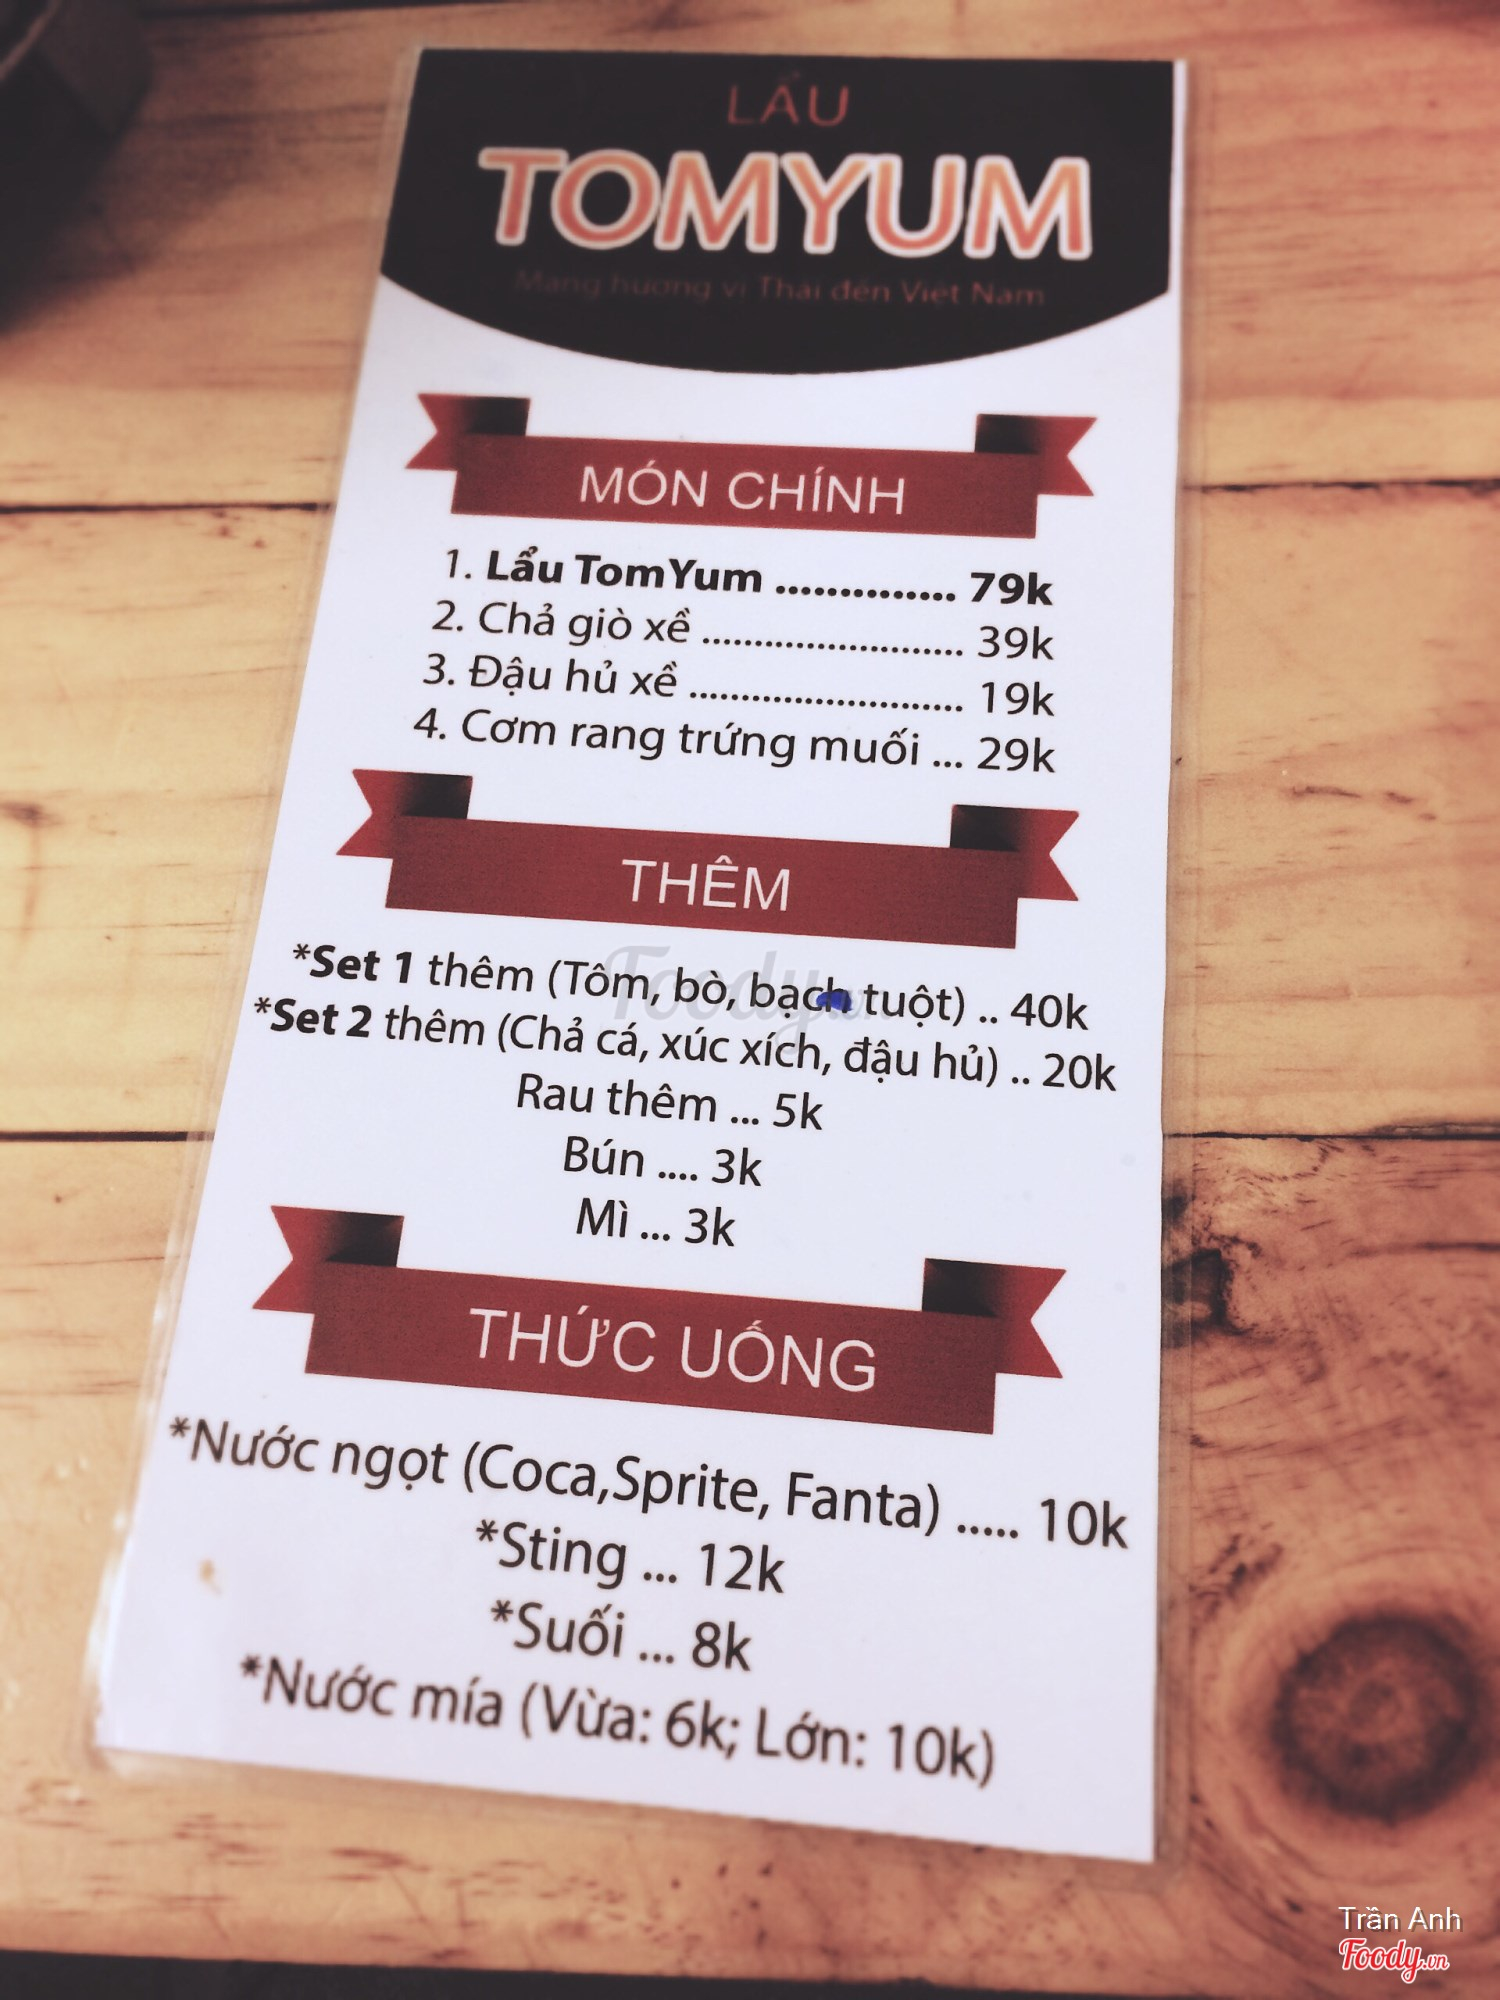 LẨU
TOMYUM
Mang hương vị Thái đến Việt Nam
MÓN CHÍNH
1. Lẩu TomYum .............. 79k
2. Chả giò xề .......................... 39k
3. Đậu hủ xề ........................... 19k
4. Cơm rang trứng muối ... 29k
THÊM
*Set 1 thêm (Tôm, bò, bạch tuột) .. 40k
*Set 2 thêm (Chả cá, xúc xích, đậu hủ) .. 20k
Rau thêm ... 5k
Bún .... 3k
Mì ... 3k
THỨC UỐNG
*Nước ngọt (Coca,Sprite, Fanta) ..... 10k
*Sting ... 12k
*Suối ... 8k
*Nước mía (Vừa: 6k; Lớn: 10k)
Foody.vn
Trần Anh
Foody.vn